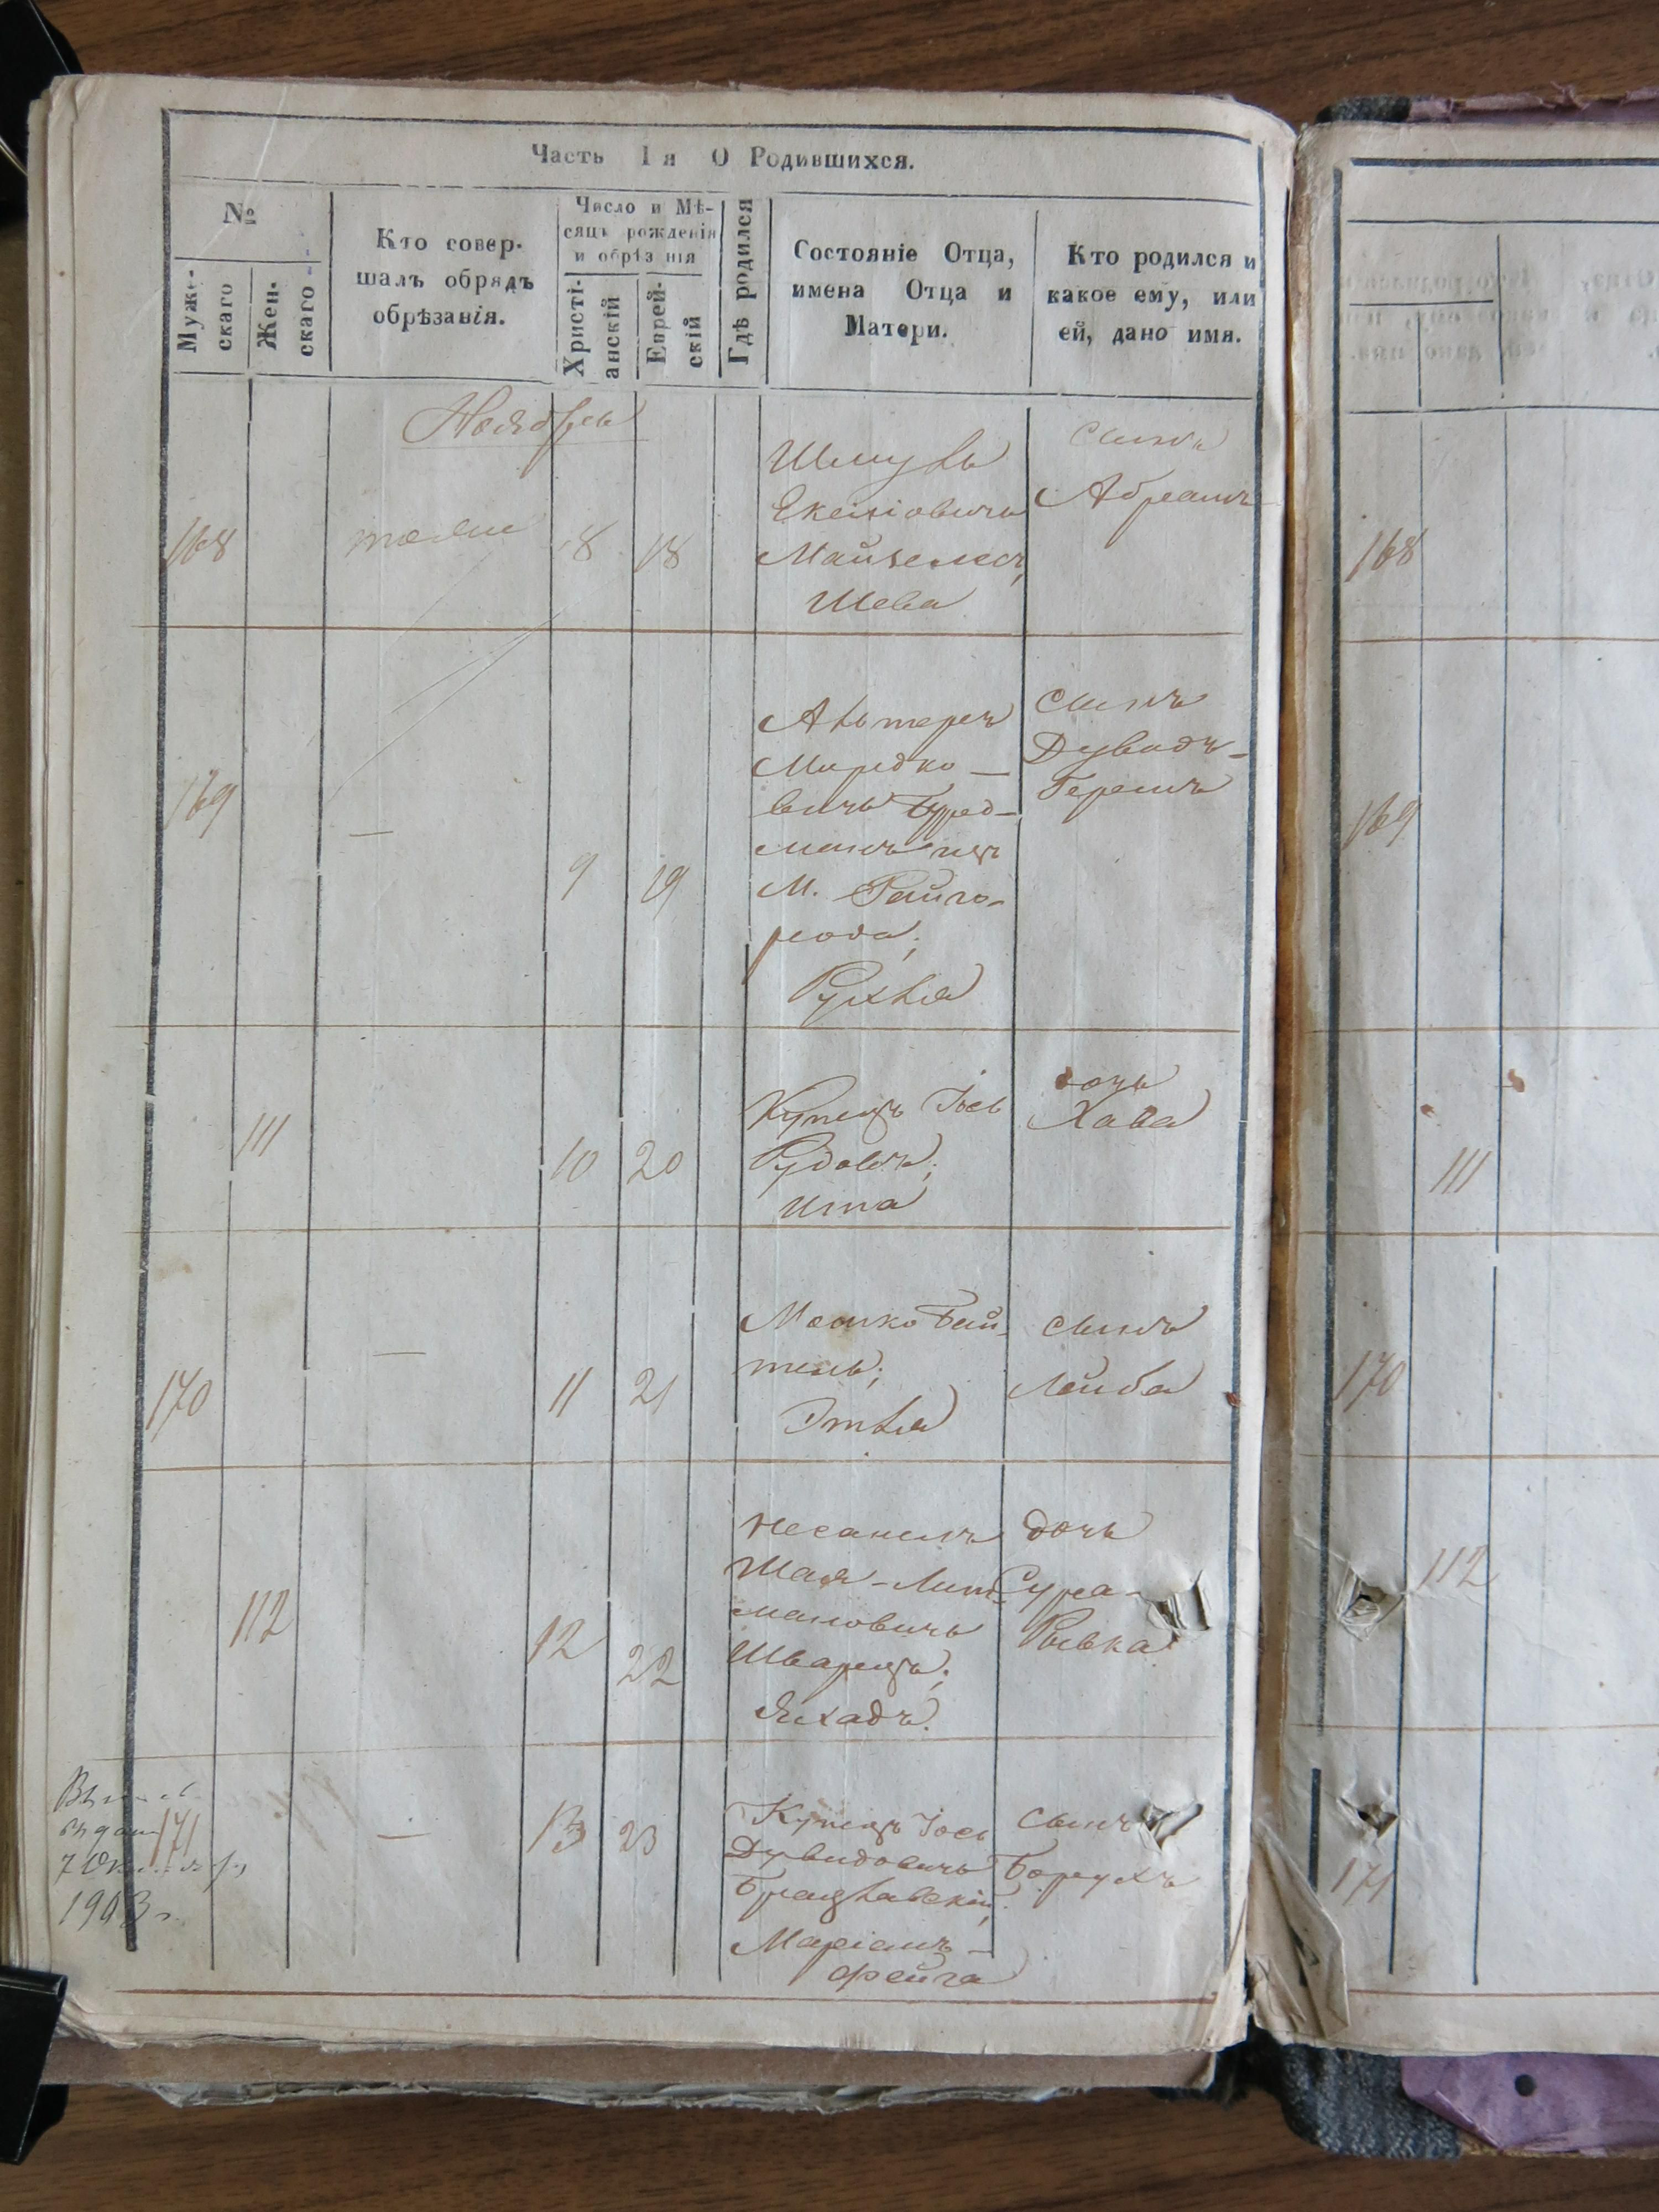 Часть 1я О Родившихся.
№
Мужескаго
Женскаго
Кто совершалъ обрядъ обрѣзанія.
Число и Мѣсяцъ рожденія и обрѣзанія
Христіанскій
Еврейскій
Гдѣ родился
Состояніе Отца, имена Отца и Матери.
Кто родился и какое ему, или ей, дано имя.
Ноябрь
168
8
18
Шмуль
Майзелесъ,
Шева
Сынъ
Абрамъ
168
169
—
9
19
Альтеръ
Мордко-
вичъ
манъ изъ
М. Райго-
рода,
Рухля
Сынъ
Дувидъ-
Гершъ
169
111
10
20
Купецъ Іось
Ита
дочь
Хава
111
170
—
11
21
Мошко Бей-
тель;
Этля
сынъ
Лейба
170
112
12
22
Шая-Лит-
мановичъ
Шварцъ;
дочь
Сура-
Ривка
112
171
—
13
23
Купецъ Іось
Дувидовичъ
Брацлавскій,
Маріамъ-
Фейга
Сынъ
Борухъ
171
1903 г.